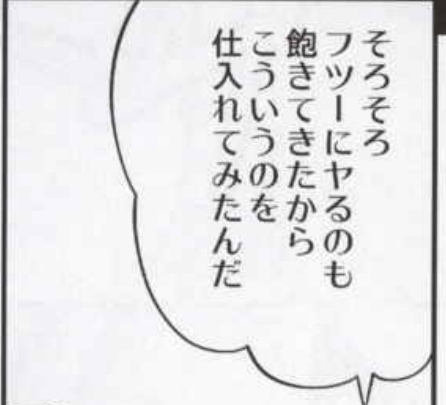 そろそろ
フツーにヤるのも
飽きてきたから
こういうのを
仕入れてみたんだ